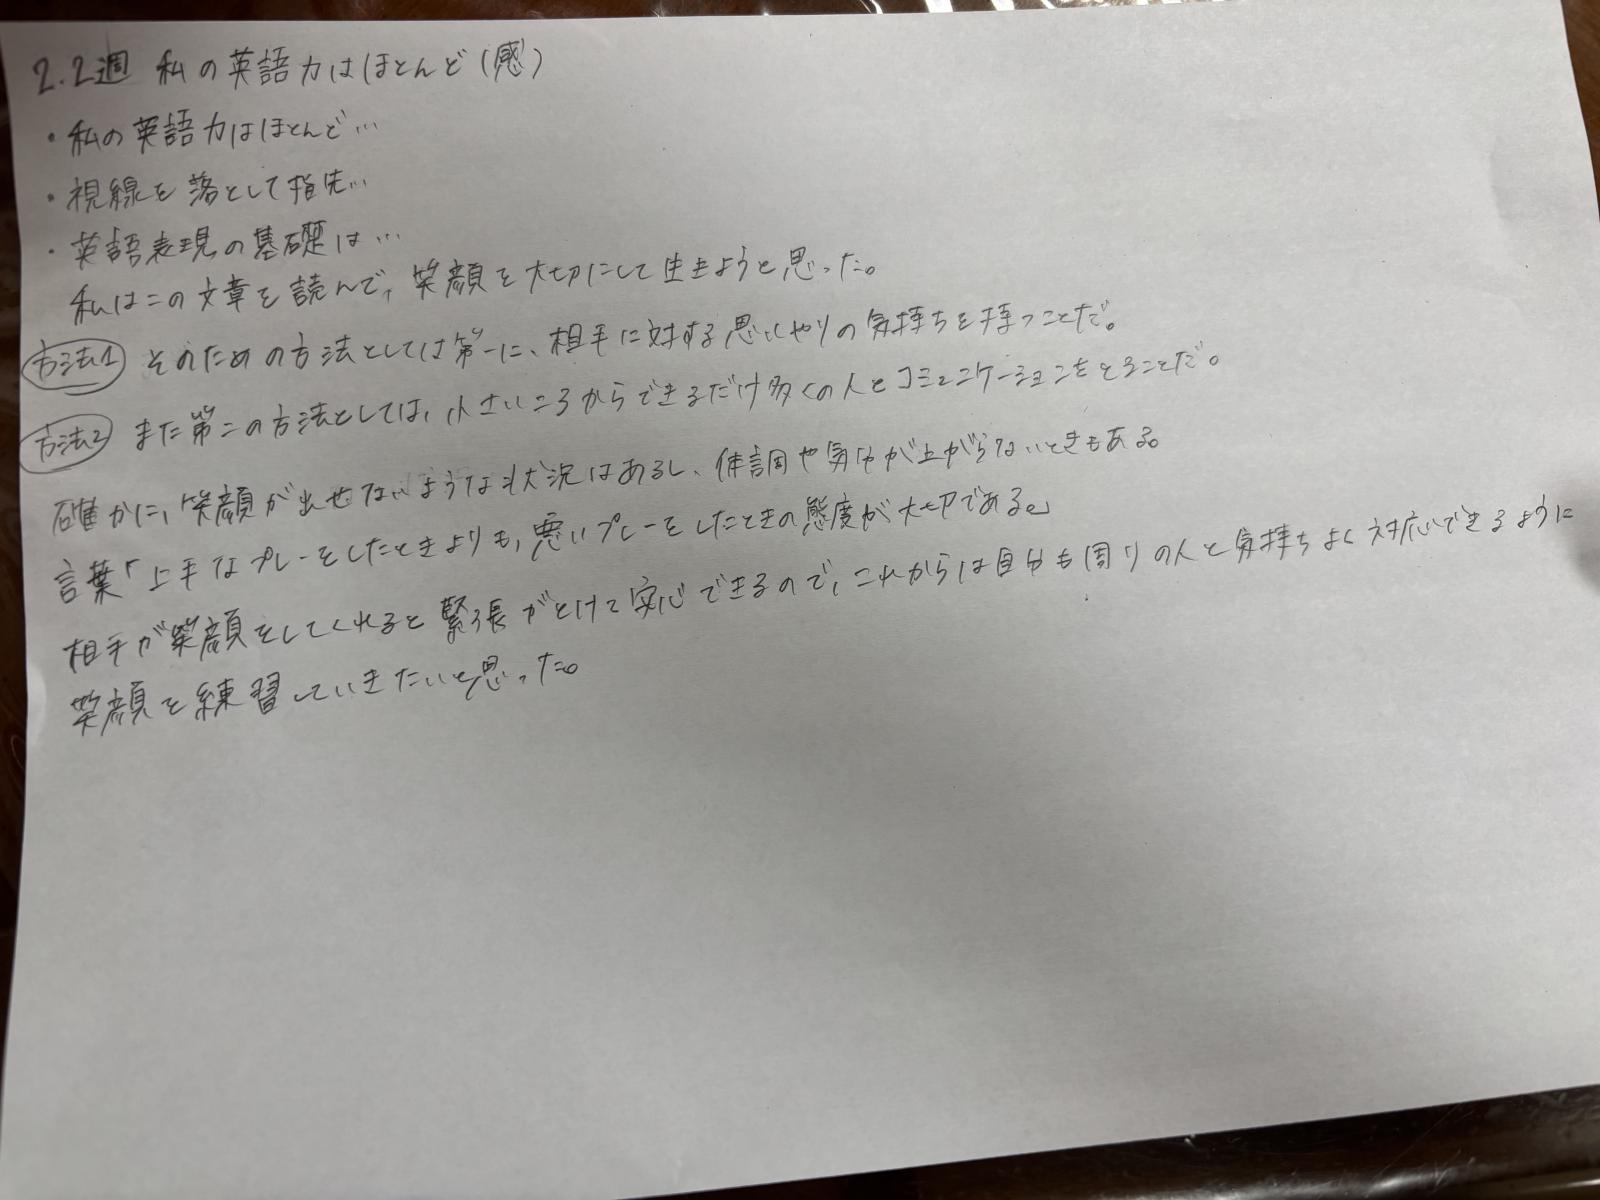 2.2週 私の英語力はほとんど(感)
・私の英語力はほとんど…
・視線を落として指先…
・英語表現の基礎は…
私はこの文章を読んで、笑顔を大切にして生きようと思った。
方法1 そのための方法としては第一に、相手に対する思いやりの気持ちを持つことだ。
方法2 また第二の方法としては、小さいころからできるだけ多くの人とコミュニケーションをとることだ。
確かに、笑顔が出せないような状況はあるし、体調や気分が上がらないときもある。
言葉「上手なプレーをしたときよりも、悪いプレーをしたときの態度が大切である。」
相手が笑顔をしてくれると緊張がとけて安心できるので、これからは自分も周りの人と気持ちよく対応できるように
笑顔を練習していきたいと思った。